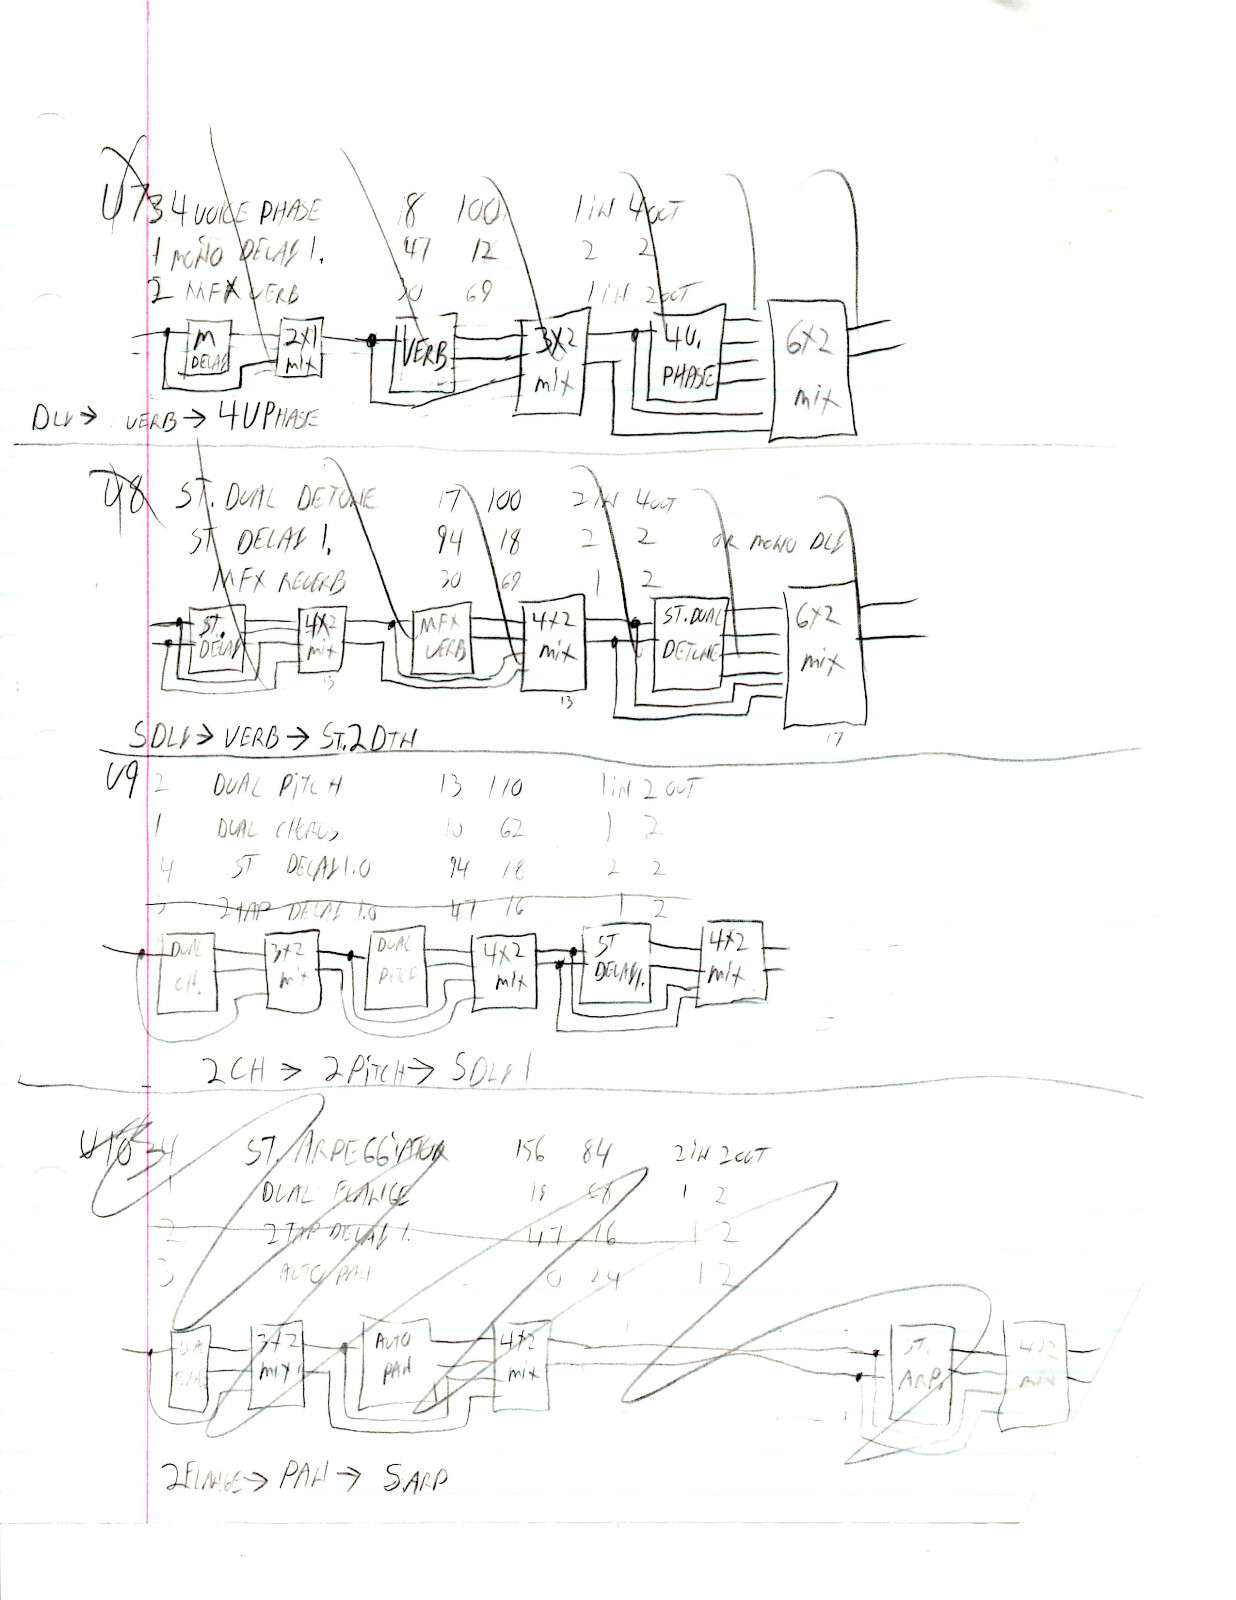 U7 3 4 VOICE PHASE 18 100 1 IN 4 OUT
1 MONO DELAY 1. 47 12 2 2
2 MFX VERB 30 69 1 IN 2 OUT
M DELAY 2X1 MIX VERB 3X2 MIX 4V. PHASE 6X2 MIX
DLY → VERB → 4VPHASE
U8 ST. DUAL DETUNE 17 100 2 IN 4 OUT
ST DELAY 1. 94 18 2 2 OR MONO DLY
MFX REVERB 30 69 1 2
ST. DELAY 4X2 MIX 13 MFX VERB 4X2 MIX 13 ST. DUAL DETUNE 6X2 MIX 17
SDLY → VERB → ST.2DTN
U9 2 DUAL PITCH 13 110 1 IN 2 OUT
1 DUAL CHORUS 10 62 1 2
4 ST DELAY 1.0 94 18 2 2
3 2TAP DELAY 1.0 47 16 1 2
DUAL CH. 3X2 MIX DUAL PITCH 4X2 MIX ST DELAY 1. 4X2 MIX
2CH → 2PITCH → SDLY 1
U10 4 ST. ARPEGGIATOR 156 84 2 IN 2 OUT
1 DUAL FLANGE 18 68 1 2
2 2TAP DELAY 1. 47 16 1 2
3 AUTO PAN 0 24 1 2
3X2 MIX AUTO PAN 4X2 MIX ST. ARP. 4X2 MIX
2FLANGE → PAN → SARP